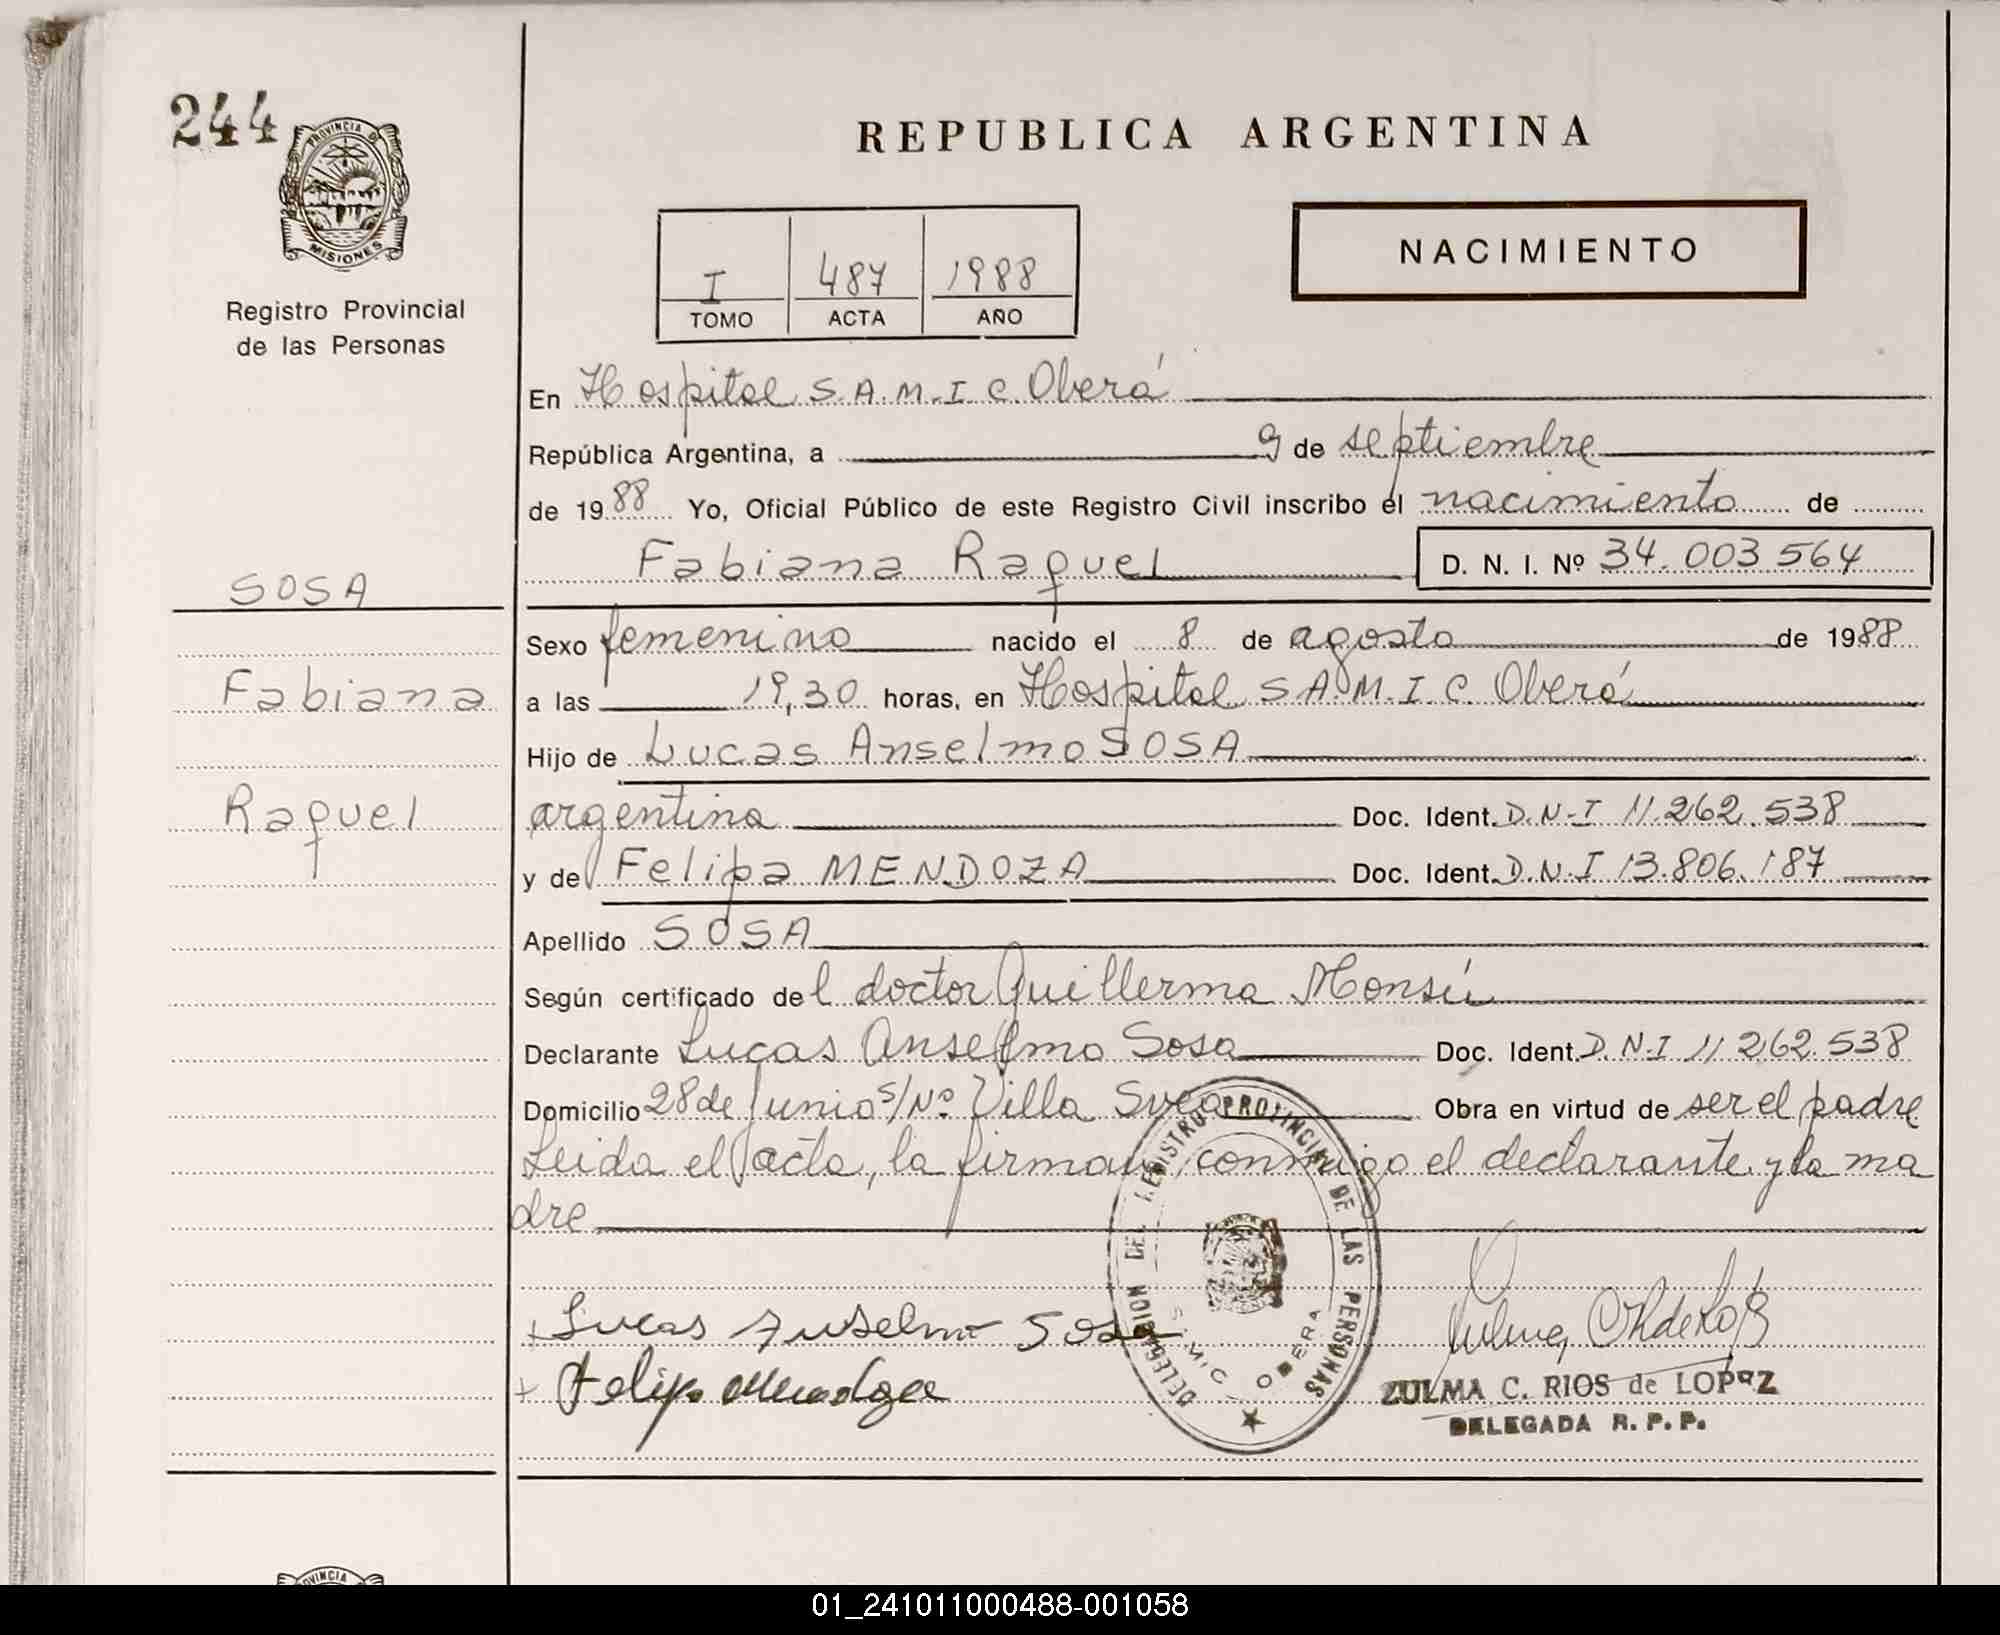 244
PROVINCIA DE
MISIONES
Registro Provincial
de las Personas
REPUBLICA ARGENTINA
I 487 1988
TOMO ACTA AÑO
NACIMIENTO
En Hospital S.A.M.I.C. Oberá
República Argentina, a 9 de septiembre
de 1988 Yo, Oficial Público de este Registro Civil inscribo el nacimiento de
Fabiana Raquel D. N. I. Nº 34.003.564
SOSA
Fabiana
Raquel
Sexo femenino nacido el 8 de agosto de 1988
a las 19,30 horas, en Hospital S.A.M.I.C. Oberá
Hijo de Lucas Anselmo SOSA
argentina Doc. Ident. D.N.I 11.262.538
y de Felipa MENDOZA Doc. Ident. D.N.I 13.806.187
Apellido SOSA
Según certificado del doctor Guillermo Monsú
Declarante Lucas Anselmo Sosa Doc. Ident. D.N.I 11.262.538
Domicilio 28 de Junio s/Nº Villa Svea Obra en virtud de ser el padre
Leida el acta, la firman conmigo el declarante y la ma
dre
DELEGACION DEL REGISTRO PROVINCIAL DE LAS PERSONAS
OBERA
Lucas Anselmo Sosa
Felipa Mendoza
ZULMA C. RIOS de LOPEZ
DELEGADA R. P. P.
PROVINCIA
01_241011000488-001058